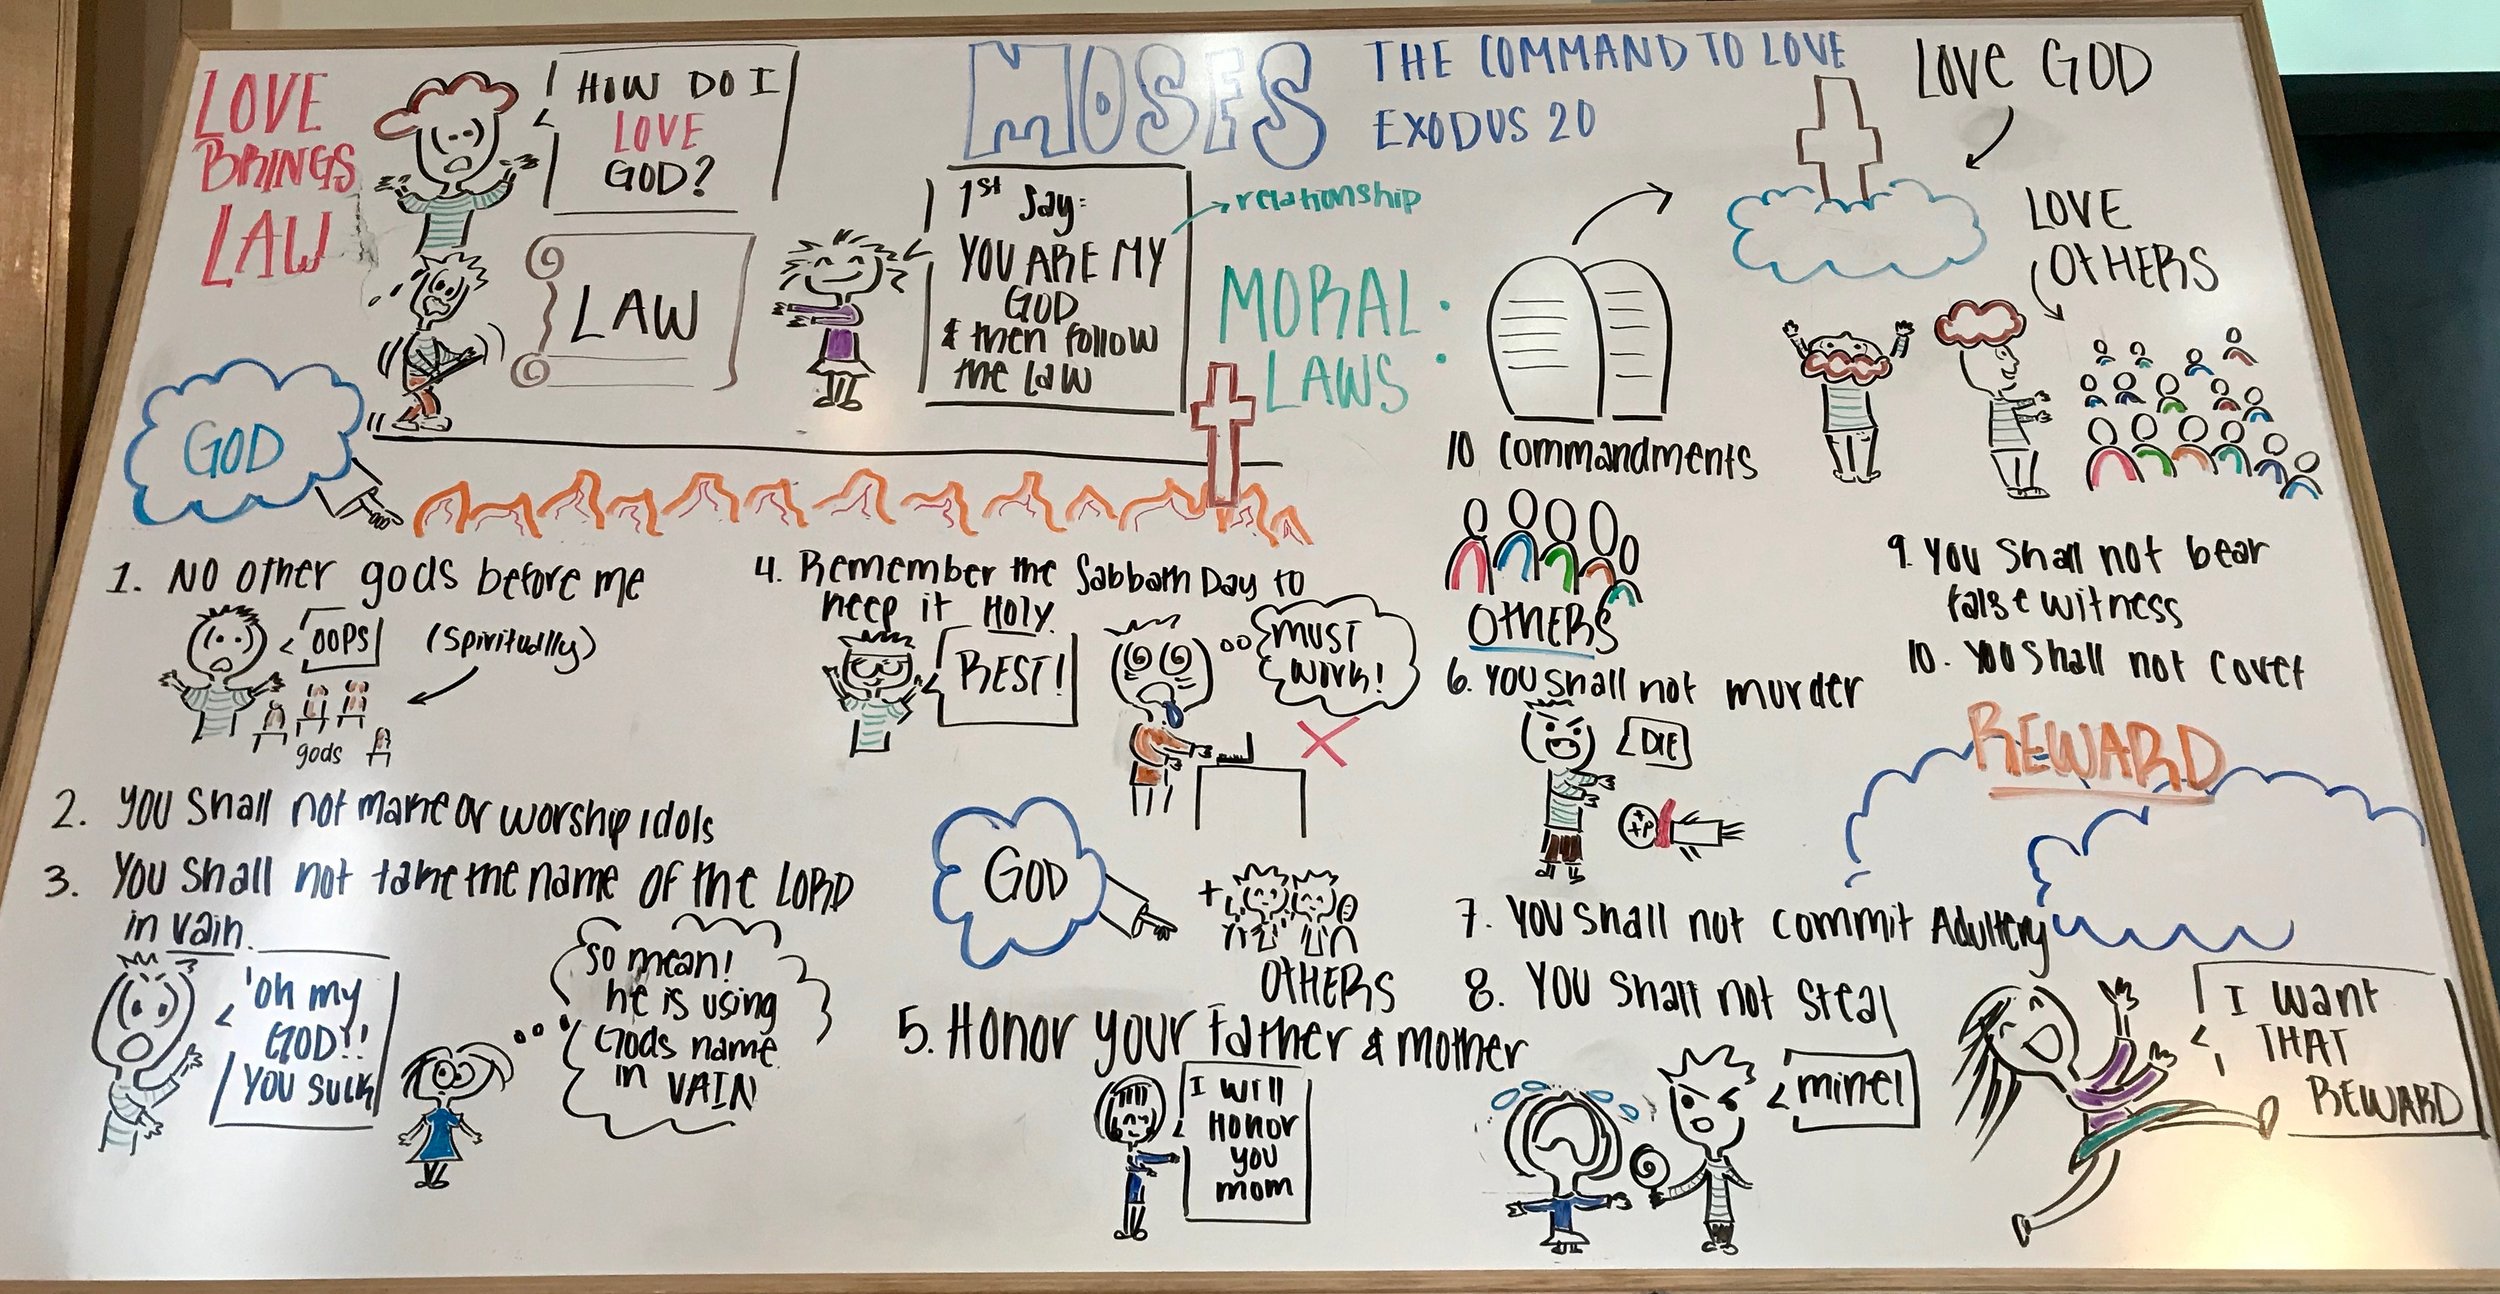 LOVE
BRINGS
LAW
HOW DO I
LOVE
GOD?
LAW
1st say:
YOU ARE MY
GOD
& then follow
the law
relationship
MOSES
THE COMMAND TO LOVE
EXODUS 20
MORAL
LAWS:
10 commandments
LOVE GOD
LOVE
OTHERS
GOD
1. NO other gods before me
OOPS
(spiritually)
gods
2. YOU shall not make or worship idols
3. YOU shall not take the name of the LORD
in vain.
'Oh my
GOD!!
YOU SUCK
so mean!
he is using
Gods name
in VAIN
4. Remember the Sabbath Day to
keep it HOLY.
REST!
MUST
WORK!
GOD
+
OTHERS
5. Honor your Father & mother
I will
Honor
you
mom
OTHERS
6. YOU shall not murder
DIE
7. YOU shall not commit Adultery
8. YOU shall not steal
mine!
9. YOU shall not bear
false witness
10. YOU shall not covet
REWARD
I want
THAT
REWARD